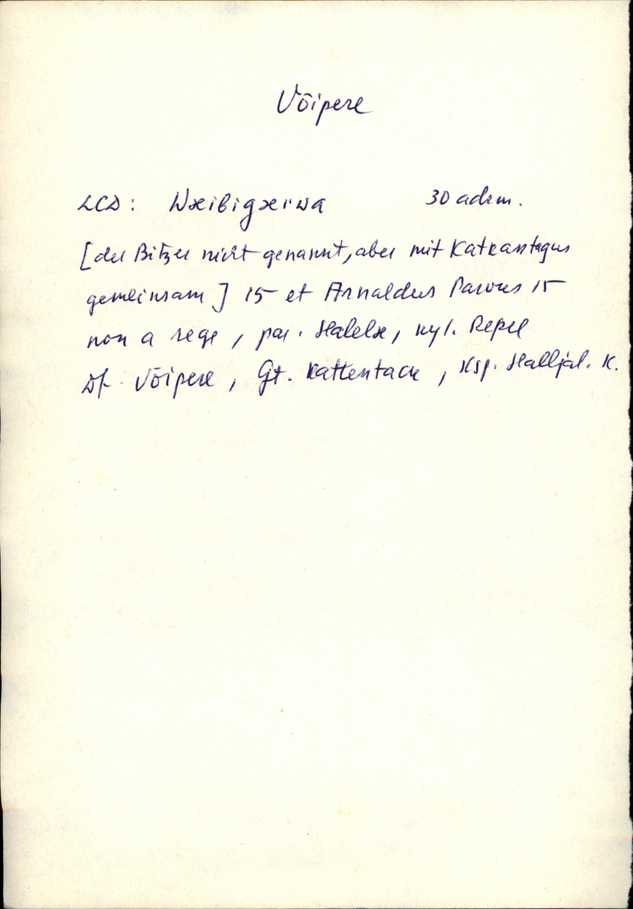 Võipere
LCD: Wæibigæriwa 30 adsm.
[der Bitzer nicht genannt, aber mit Katkantagus
gemeinsam] 15 et Arnaldus Paruus 15
non a rege, par. Halelæ, kyl. Repel
Df. Võipere, Gt. Kattentack, Ksp. Halljal. K.